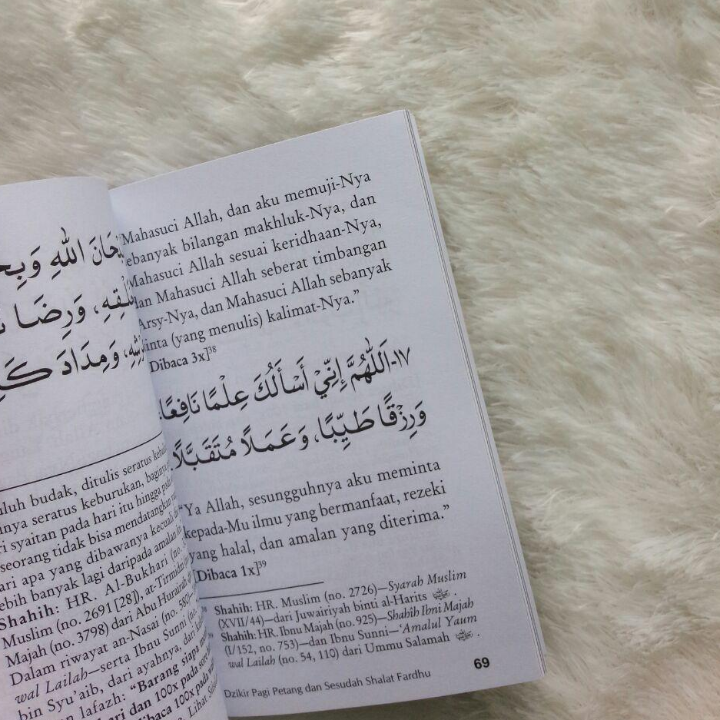 اللهِ
وَرِضَا
وَمِدَادَ
budak, ditulis seratus
seratus keburukan,
syaitan pada hari itu hingga
seorang tidak bisa mendatangkan
apa yang dibawanya kecuali
lebih banyak lagi daripada amalan
Shahih: HR. Al-Bukhari (no.
Muslim (no. 2691 [28]), at-Tirmidzi
Majah (no. 3798) dari Abu Hurairah
Dalam riwayat an-Nasai (no. 580)—
wal Lailah—serta Ibnu Sunni
bin Syu'aib, dari ayahnya, dari
lafazh: "Barang siapa
dan 100x pada
dibaca 100x pada
Lihat
Mahasuci Allah, dan aku memuji-Nya
sebanyak bilangan makhluk-Nya, dan
Mahasuci Allah sesuai keridhaan-Nya,
dan Mahasuci Allah seberat timbangan
'Arsy-Nya, dan Mahasuci Allah sebanyak
tinta (yang menulis) kalimat-Nya."
[Dibaca 3x]³⁸
١٧-اَللّٰهُمَّ إِنِّيْ أَسْأَلُكَ عِلْمًا نَافِعًا،
وَرِزْقًا طَيِّبًا، وَعَمَلًا مُتَقَبَّلًا
"Ya Allah, sesungguhnya aku meminta
kepada-Mu ilmu yang bermanfaat, rezeki
yang halal, dan amalan yang diterima."
[Dibaca 1x]³⁹
Shahih: HR. Muslim (no. 2726)—Syarah Muslim
(XVII/44)—dari Juwairiyah binti al-Harits
Shahih: HR. Ibnu Majah (no. 925)—Shahih Ibni Majah
(I/152, no. 753)—dan Ibnu Sunni—'Amalul Yaum
wal Lailah (no. 54, 110) dari Ummu Salamah
Dzikir Pagi Petang dan Sesudah Shalat Fardhu 69